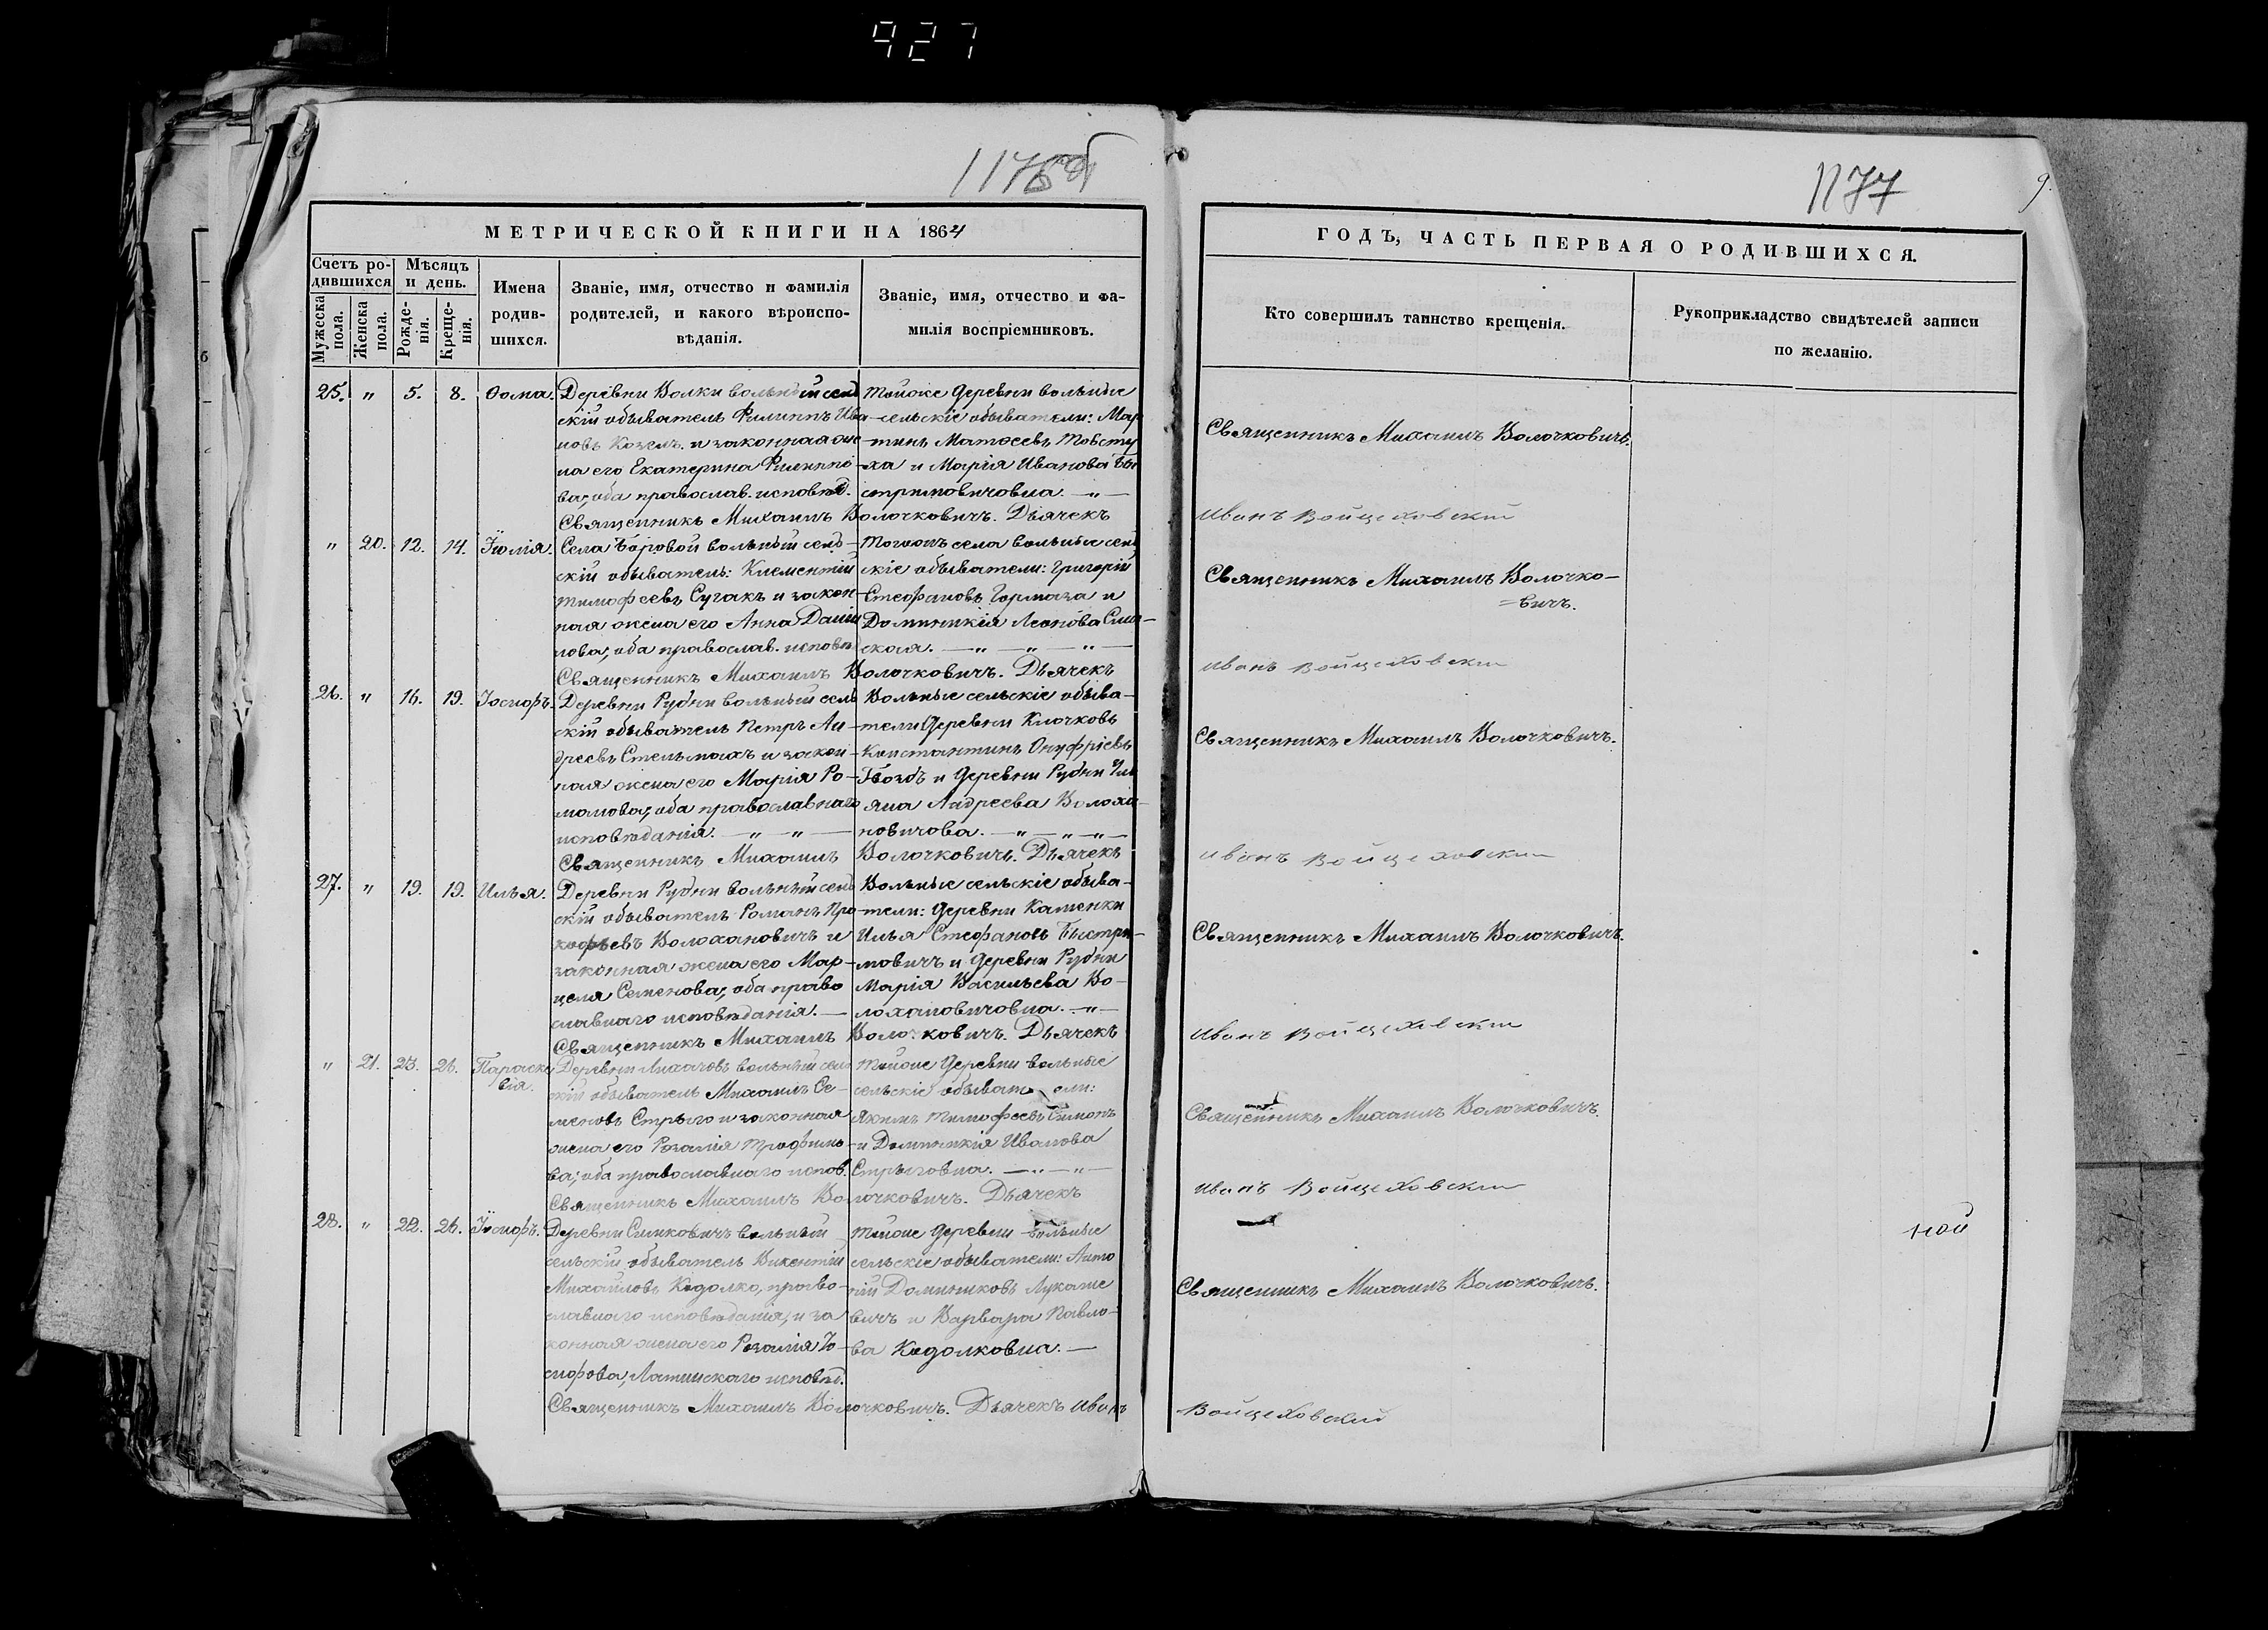 927
1176об
1177
9.
МЕТРИЧЕСКОЙ КНИГИ НА 1864
Счетъ родившихся
Мужеска пола.
Женска пола.
Мѣсяцъ и день.
Рожденія.
Крещенія.
Имена родившихся.
Званіе, имя, отчество и фамилія
родителей, и какого вѣроиспо-
вѣданія.
Званіе, имя, отчество и фа-
милія воспріемниковъ.
ГОДЪ, ЧАСТЬ ПЕРВАЯ О РОДИВШИХСЯ.
Кто совершилъ таинство крещенія.
Рукоприкладство свидѣтелей записи
по желанію.
25. " 5. 8. Ѳома.
Деревни Волки вольный сель
скій обыватель Филиппъ Ива
новъ Козелъ и законная же
на его Екатерина Филиппо
ва, оба православ. исповѣд.
Тойже деревни вольные
сельскіе обыватели: Мар
тинъ Матѳеевъ Товсту
ха и Марія Иванова Бы
стримовичовна. — " —
Священникъ Михаилъ Волочковичъ.
Священникъ Михаилъ Волочковичъ. Дьячекъ
Иванъ Войцеховскій
" 20. 12. 14. Юлія.
Села Боровой вольный сель-
скій обыватель: Климентій
Тимофеевъ Сугакъ и закон-
ная жена его Анна Даніи
лова, оба православ. исповѣ
Тогожъ села вольные сель
скіе обыватели: Григорій
Стефановъ Гормаза и
Доминикія Леонова
ская. — " — " — " —
Священникъ Михаилъ Волочко-
=вичъ.
Священникъ Михаилъ Волочковичъ. Дьячекъ
Иванъ Войцеховскій
26. " 16. 19. Іосифъ.
Деревни Рудни вольный сель
скій обыватель Петръ Ан-
дреевъ Стельмахъ и закон-
ная жена его Марія Ро-
манова, оба православнаго
исповѣданія. — " — " —
Вольные сельскіе обыва-
тели деревни Клочковъ
Константинъ Онуфріевъ
Гвоздъ и деревни Рудни Уль
яна Андреева Волоха-
новичова. — " — " — " —
Священникъ Михаилъ Волочковичъ.
Священникъ Михаилъ Волочковичъ. Дьячекъ
Иванъ Войцеховскій
27. " 19. 19. Илья.
Деревни Рудни вольный сель
скій обыватель Романъ Про
кофьевъ Волохановичъ и
законная жена его Мар-
целя Семенова, оба право
славнаго исповѣданія. —
Вольные сельскіе обыва-
тели: деревни Каменки
Илья Стефановъ Быстри-
мовичъ и деревни Рудни
Марія Васильева Во-
лохановичовна. — " —
Священникъ Михаилъ Волочковичъ.
Священникъ Михаилъ Волочковичъ. Дьячекъ
Иванъ Войцеховскій
" 21. 23. 26. Параске
вія.
Деревни Лихачовъ вольный сель
скій обыватель Михаилъ Се-
меновъ Стрыго и законная
жена его Розалія Трофимо-
ва, оба православнаго испов.
Тойже деревни вольные
сельскіе обыватели:
Якимъ Тимофеевъ Симонъ
и Доминикія Иванова
Стрыговна. — " — " —
Священникъ Михаилъ Волочковичъ.
Священникъ Михаилъ Волочковичъ. Дьячекъ
Иванъ Войцеховскій
28. " 22. 26. Іосифъ.
Деревни Синковичъ вольный
сельскій обыватель Викентій
Михайловъ Кодолко, право-
славнаго исповѣданія, и за
конная жена его Розалія Іо-
сифова, Латинскаго исповѣд.
Тойже деревни вольные
сельскіе обыватели: Анто
ній Доминиковъ Лукаше
вичъ и Варвара Павло-
ва Кодолковна. —
Священникъ Михаилъ Волочковичъ.
Священникъ Михаилъ Волочковичъ. Дьячекъ Иванъ
Войцеховскій
ной